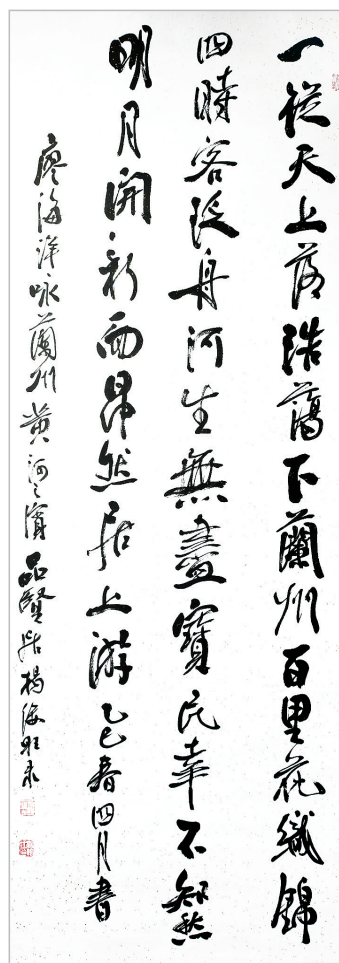 一從天上落浩蕩下蘭州百里花織錦
四時客泛舟河生無盡寶民幸不知愁
明月開新面昂然居上游乙巳春四月書
廖海洋咏蘭州黃河之濱品賢居楊海